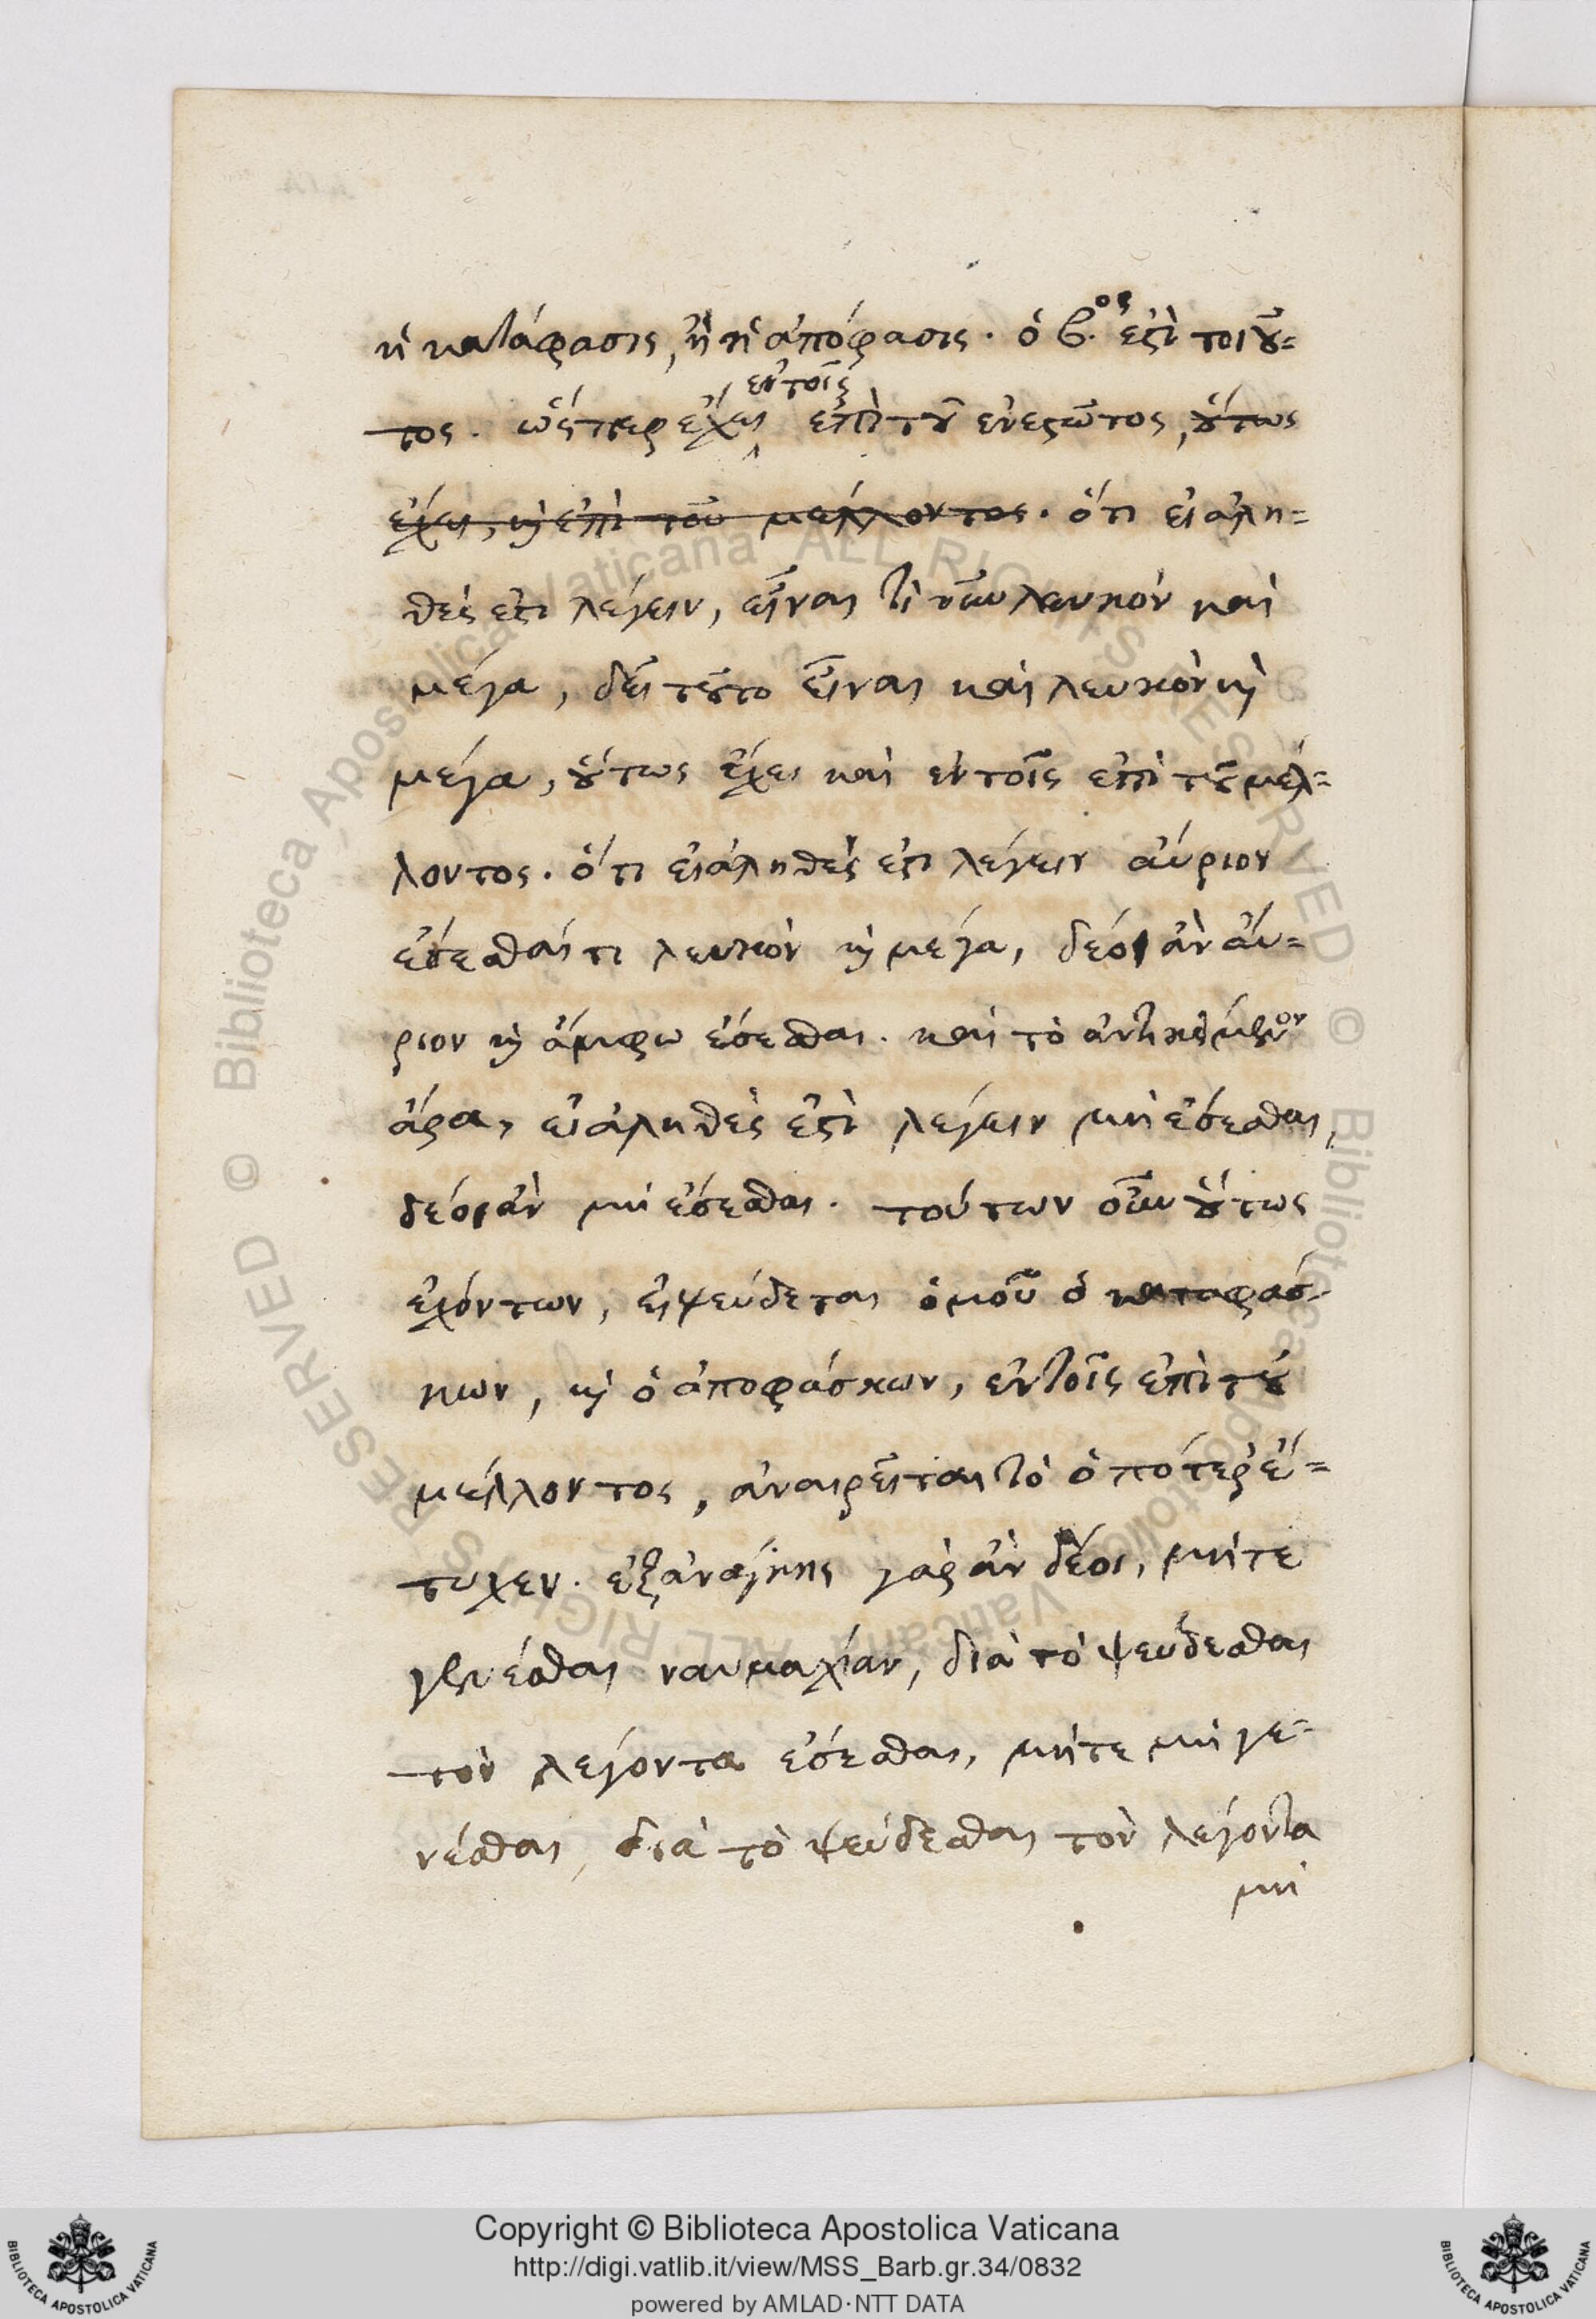 ἡ κατάφασις, ἢ ἡ ἀπόφασις. ὁ β.ος ἐστὶ τοιοῦ=
τος. ὥςπερ ἔχει ἐν τοῖς ἐπὶ τοῦ ἐνεστῶτος, οὕτως
ἔχει, καὶ ἐπὶ τοῦ μέλλοντος. ὅτι εἰ ἀλη=
θές ἐστι λέγειν, εἶναι τὶ νῦν λευκὸν καὶ
μέγα, δεῖ τοῦτο εἶναι καὶ λευκὸν καὶ
μέγα, οὕτως ἔχει καὶ ἐν τοῖς ἐπὶ τοῦ μέλ=
λοντος. ὅτι εἰ ἀληθές ἐστι λέγειν αὔριον
ἔσεσθαί τι λευκὸν καὶ μέγα, δέοι ἂν αὔ=
ριον καὶ ἄμφω ἔσεσθαι. καὶ τὸ ἀντικείμενον
ἄρα, εἰ ἀληθές ἐστὶ λέγειν μὴ ἔσεσθαι,
δέοι ἂν μὴ ἔσεσθαι. τούτων οὖν οὕτως
ἐχόντων, εἰ ψεύδεται ὁμοῦ ὁ καταφάσ-
κων, καὶ ὁ ἀποφάσκων, ἐν τοῖς ἐπὶ τοῦ
μέλλοντος, ἀναιρεῖται τὸ ὁπότερ ἔ=
τυχεν. ἐξ ἀνάγκης γὰρ ἂν δέοι, μήτε
γενέσθαι ναυμαχίαν, διὰ τὸ ψεύδεσθαι
τὸν λέγοντα ἔσεσθαι, μήτε μὴ γε=
νέσθαι, διὰ τὸ ψεύδεσθαι τὸν λέγοντα
μὴ
Biblioteca Apostolica Vaticana ALL RIGHTS RESERVED © Biblioteca Apostolica Vaticana ALL RIGHTS RESERVED ©
BIBLIOTECA APOSTOLICA VATICANA
Copyright © Biblioteca Apostolica Vaticana
http://digi.vatlib.it/view/MSS_Barb.gr.34/0832
powered by AMLAD·NTT DATA
BIBLIOTECA APOSTOLICA VATICANA